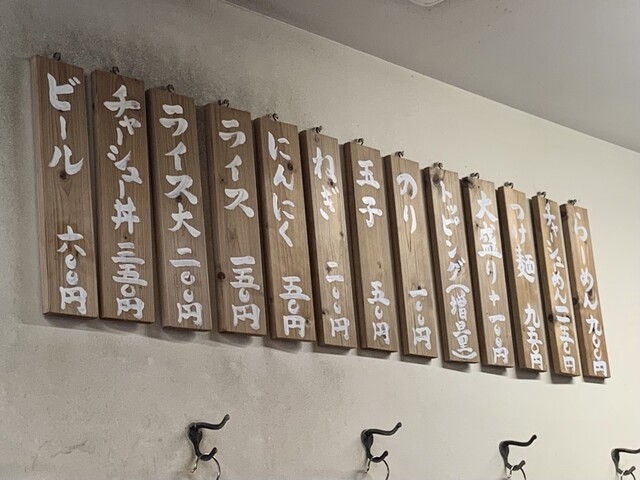 らーめん 九〇〇円
チャーシューめん 一二五〇円
つけ麺 九五〇円
大盛り+一〇〇円
トッピング(増量)
のり 一〇円
玉子 五〇円
ねぎ 二〇〇円
にんにく 五〇円
ライス 一五〇円
ライス大 二〇〇円
チャーシュー丼 三五〇円
ビール 六〇〇円